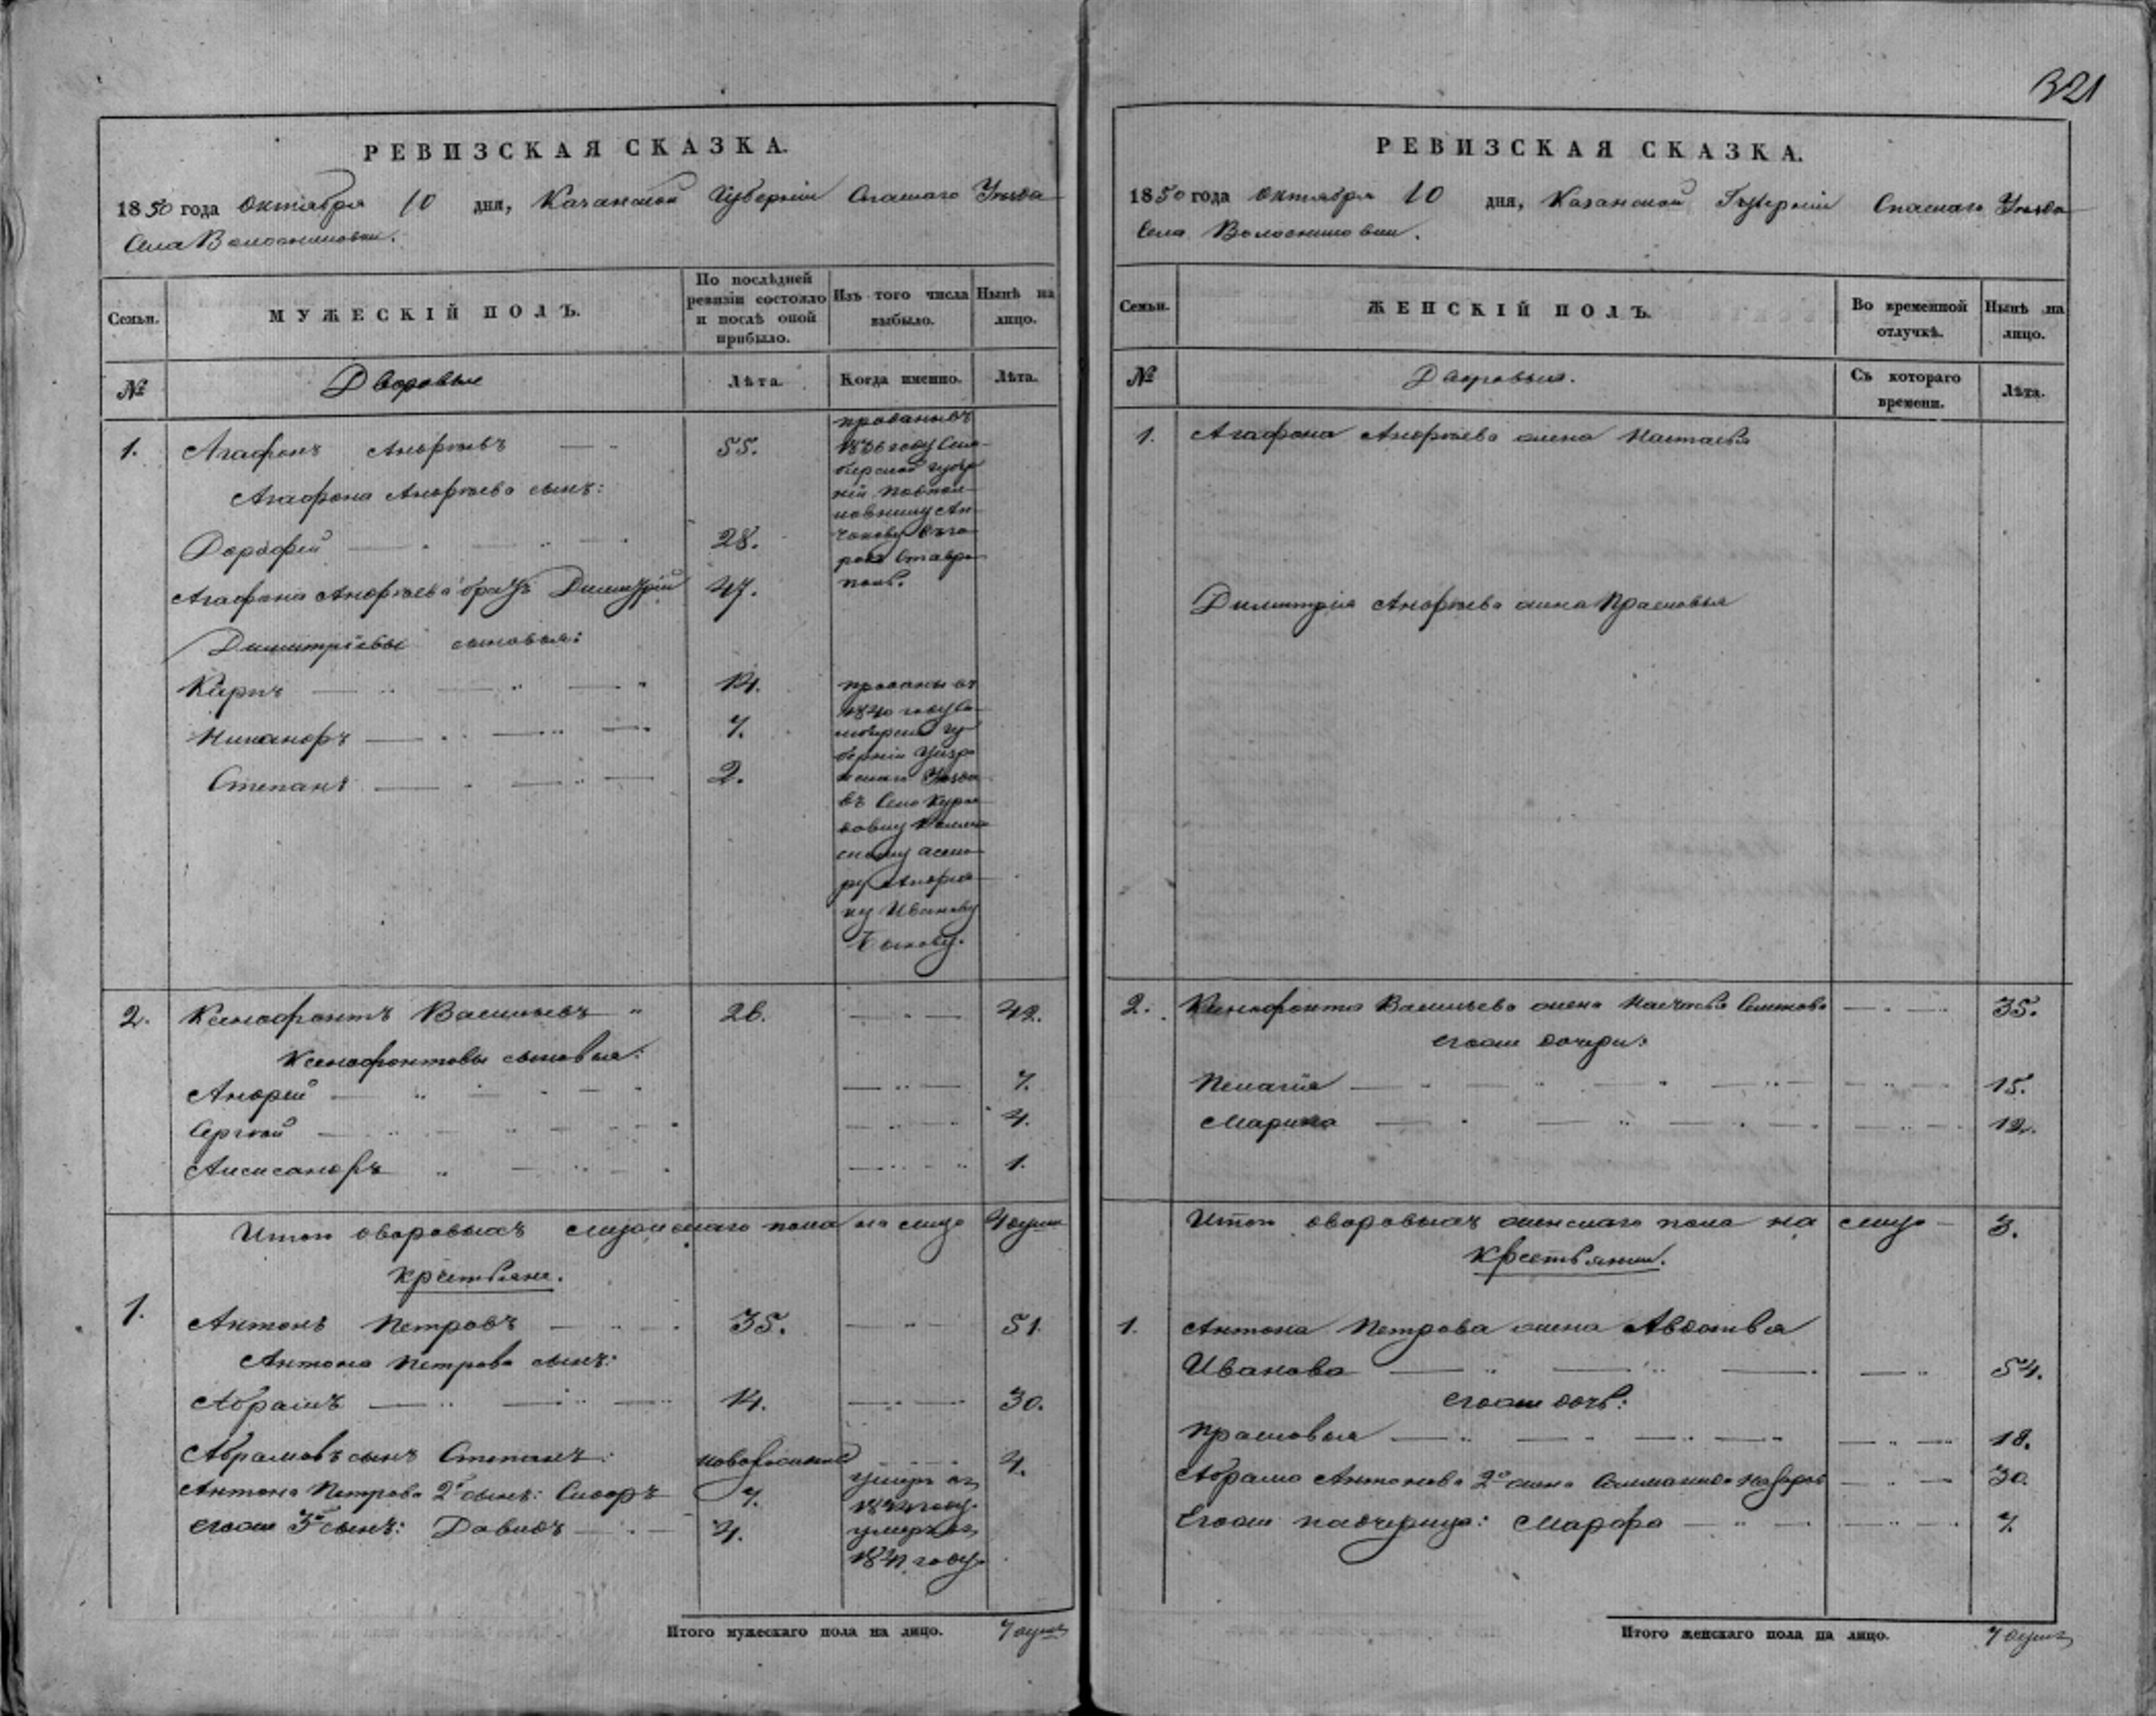 321
РЕВИЗСКАЯ СКАЗКА.
1850 года Октября 10 дня, Казанской Губерніи Спаскаго Уѣзда
Села Волосниковки.
Семьи.
МУЖЕСКІЙ ПОЛЪ.
По послѣдней ревизіи состояло и послѣ оной прибыло.
Изъ того числа выбыло.
Нынѣ на лицо.
№
Дворовые
Лѣта.
Когда именно.
Лѣта.
1. Агафонъ Андрѣевъ 55.
проданы въ
1836 году Сим-
бирской Губер-
ніи Подпол-
ковнику
въ го-
родъ Ставро-
поль.
Агафона Андрѣева сынъ:
Дорофей 28.
Агафона Андрѣева братъ Димитрій 47.
Димитріевы сыновья:
Карпъ 14.
Никаноръ 7.
Степанъ 2.
проданы въ
1840 году Си-
мбирской Гу-
берніи
Уѣзда
въ Село
Иванову
2. Ксенофонтъ Васильевъ 26. 42.
Ксенофонтовы сыновья:
Андрей 7.
Сергей 4.
Александръ 1.
Итого дворовыхъ мужескаго пола на лицо 4 души
Крестьяне.
1. Антонъ Петровъ 35. 51.
Антона Петрова сынъ:
Абрамъ 14. 30.
Абрамовъ сынъ Степанъ: новорожденный 4.
Антона Петрова 2й сынъ: Сидоръ 7. умеръ въ
1844 году.
Егоже 3й сынъ: Давидъ 4. умеръ въ
1841 году.
Итого мужескаго пола на лицо. 7 душъ
РЕВИЗСКАЯ СКАЗКА.
1850 года Октября 10 дня, Казанской Губерніи Спаскаго Уѣзда
Села Волосниковки.
Семьи.
ЖЕНСКІЙ ПОЛЪ.
Во временной отлучкѣ.
Нынѣ на лицо.
№
Дворовые.
Съ котораго времени.
Лѣта.
1. Агафона Андрѣева жена Настасья
Димитрія Андрѣева жена Прасковья
2. Ксенофонта Васильева жена Настасья Семенова 35.
егоже дочери:
Пелагія 15.
Марина 12.
Итого дворовыхъ женскаго пола на лицо 3.
Крестьянки.
1. Антона Петрова жена Авдотья
Иванова 54.
егоже дочь:
Прасковья 18.
Абрама Антонова 2я жена 30.
Егоже падчерица: Марфа 7.
Итого женскаго пола на лицо. 7 душъ